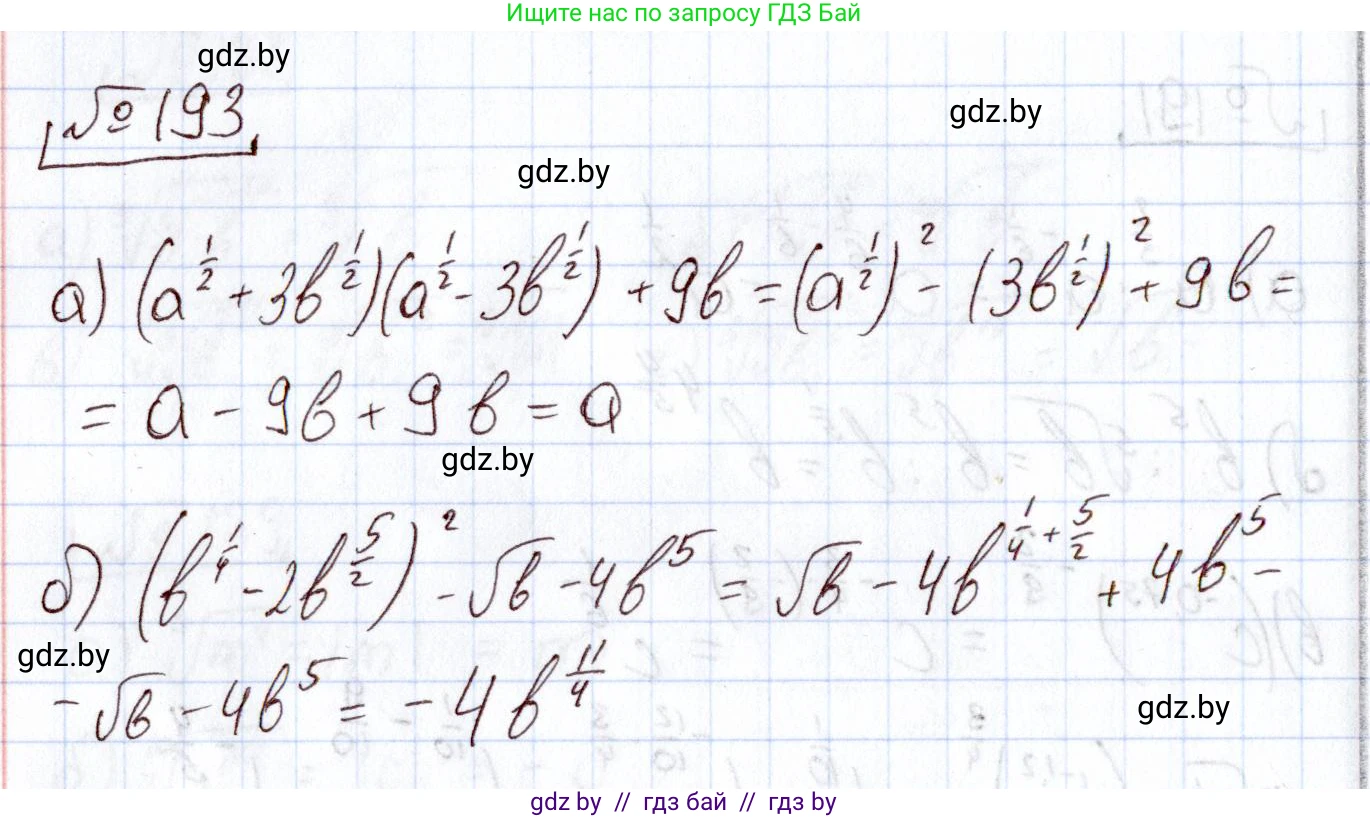 Ищите нас по запросу ГДЗ Бай
gdz.by
№ 193
gdz.by
gdz.by
а) (a^{1/2} + 3b^{1/2})(a^{1/2} - 3b^{1/2}) + 9b = (a^{1/2})^2 - (3b^{1/2})^2 + 9b =
= a - 9b + 9b = a
gdz.by
б) (b^{1/4} - 2b^{5/2})^2 - √b - 4b^5 = √b - 4b^{1/4 + 5/2} + 4b^5 -
gdz.by
- √b - 4b^5 = - 4b^{11/4}
gdz.by
gdz by // гдз бай // гдз by